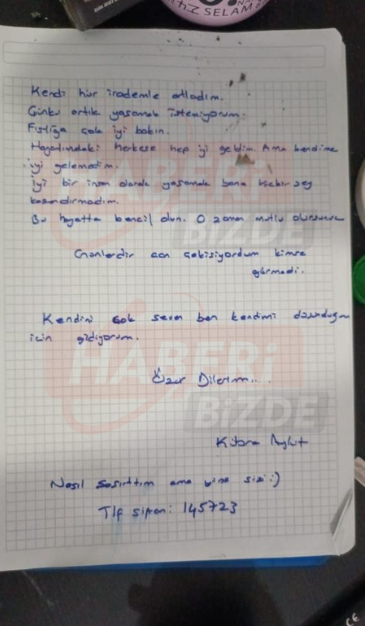 SELAM
Kendi hür irademle atladım.
Çünkü artık yaşamak istemiyorum.
Fıstığa çok iyi bakın.
Hayatımdaki herkese hep iyi geldim. Ama kendime
iyi gelemedim.
iyi bir insan olarak yaşamak bana hiçbir şey
kazandırmadım.
Bu hayatta bencil olun. O zaman mutlu olursunuz
Günlerdir can çekişiyordum kimse
görmedi.
Kendini çok seven ben kendimi düşündüğüm
için gidiyorum.
Özür Dilerim..
Kübra Aykut
Nasıl şaşırttım ama yine sizi :)
Tlf şifrem: 145723
HABERİ
BİZDE
HABERİ
BİZDE